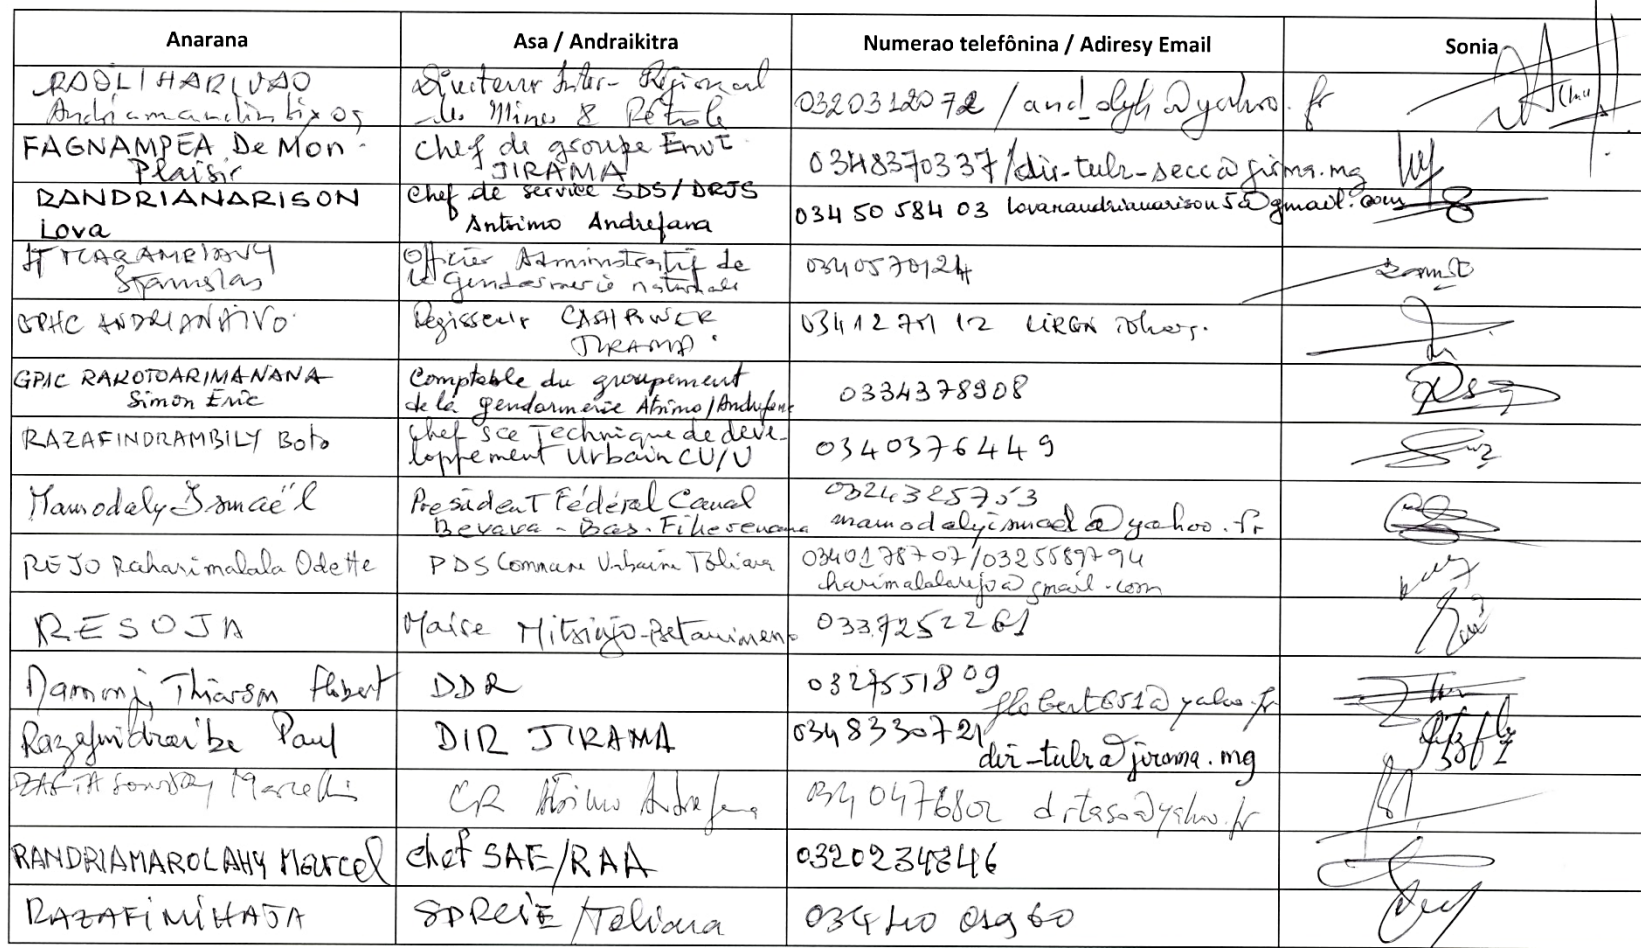 Anarana
Asa / Andraikitra
Numerao telefônina / Adiresy Email
Sonia
RAOLIHARIVAO
Directeur Inter-Régional
des Mines & Pétrole
0320312072 / and_olyh@yahoo.fr
FAGNAMPEA De Mon
Plaisir
chef de groupe Envt
JIRAMA
0348370337/dir-tulr-secc@jirama.mg
RANDRIANARISON
Lova
Chef de service SDS/DRJS
Antsimo Andrefana
034 50 584 03 lovarandrianarison5@gmail.com
Stanislas
Officier Administratif de
la Gendarmerie nationale
0340570124
GPHC ANDRIANAIVO
Régisseur CASHPOWER
JIRAMA
GPAC RAKOTOARIMANANA
Simon Eric
Comptable du groupement
de la gendarmerie Atsimo/Andrefana
0334378908
RAZAFINDRAMBILY Boto
Chef sce Technique de déve-
loppement Urbain CU/U
0340376449
Mamodaly Ismaë̈l
Président Fédéral Canal
Bevava - Bas. Fiherenana
0324325753
mamodalyismael@yahoo.fr
REJO Raharimalala Odette
PDS Commune Urbaine Toliara
0340178707/0325589794
harimalalarejo@gmail.com
RESOJA
Maire Mitsinjo-Betanimena
0337252261
Flobert
DDR
0327551809
flobert651@yahoo.fr
Paul
DIR JIRAMA
0348330721
dir-tulr@jirama.mg
CR Atsimo Andrefana
034 0476802 drtaso@yahoo.fr
RANDRIAMAROLAHY Marcel
Chef SAE/RAA
0320234846
RAZAFIMIHAJA
/Toliara
034 40 019 60